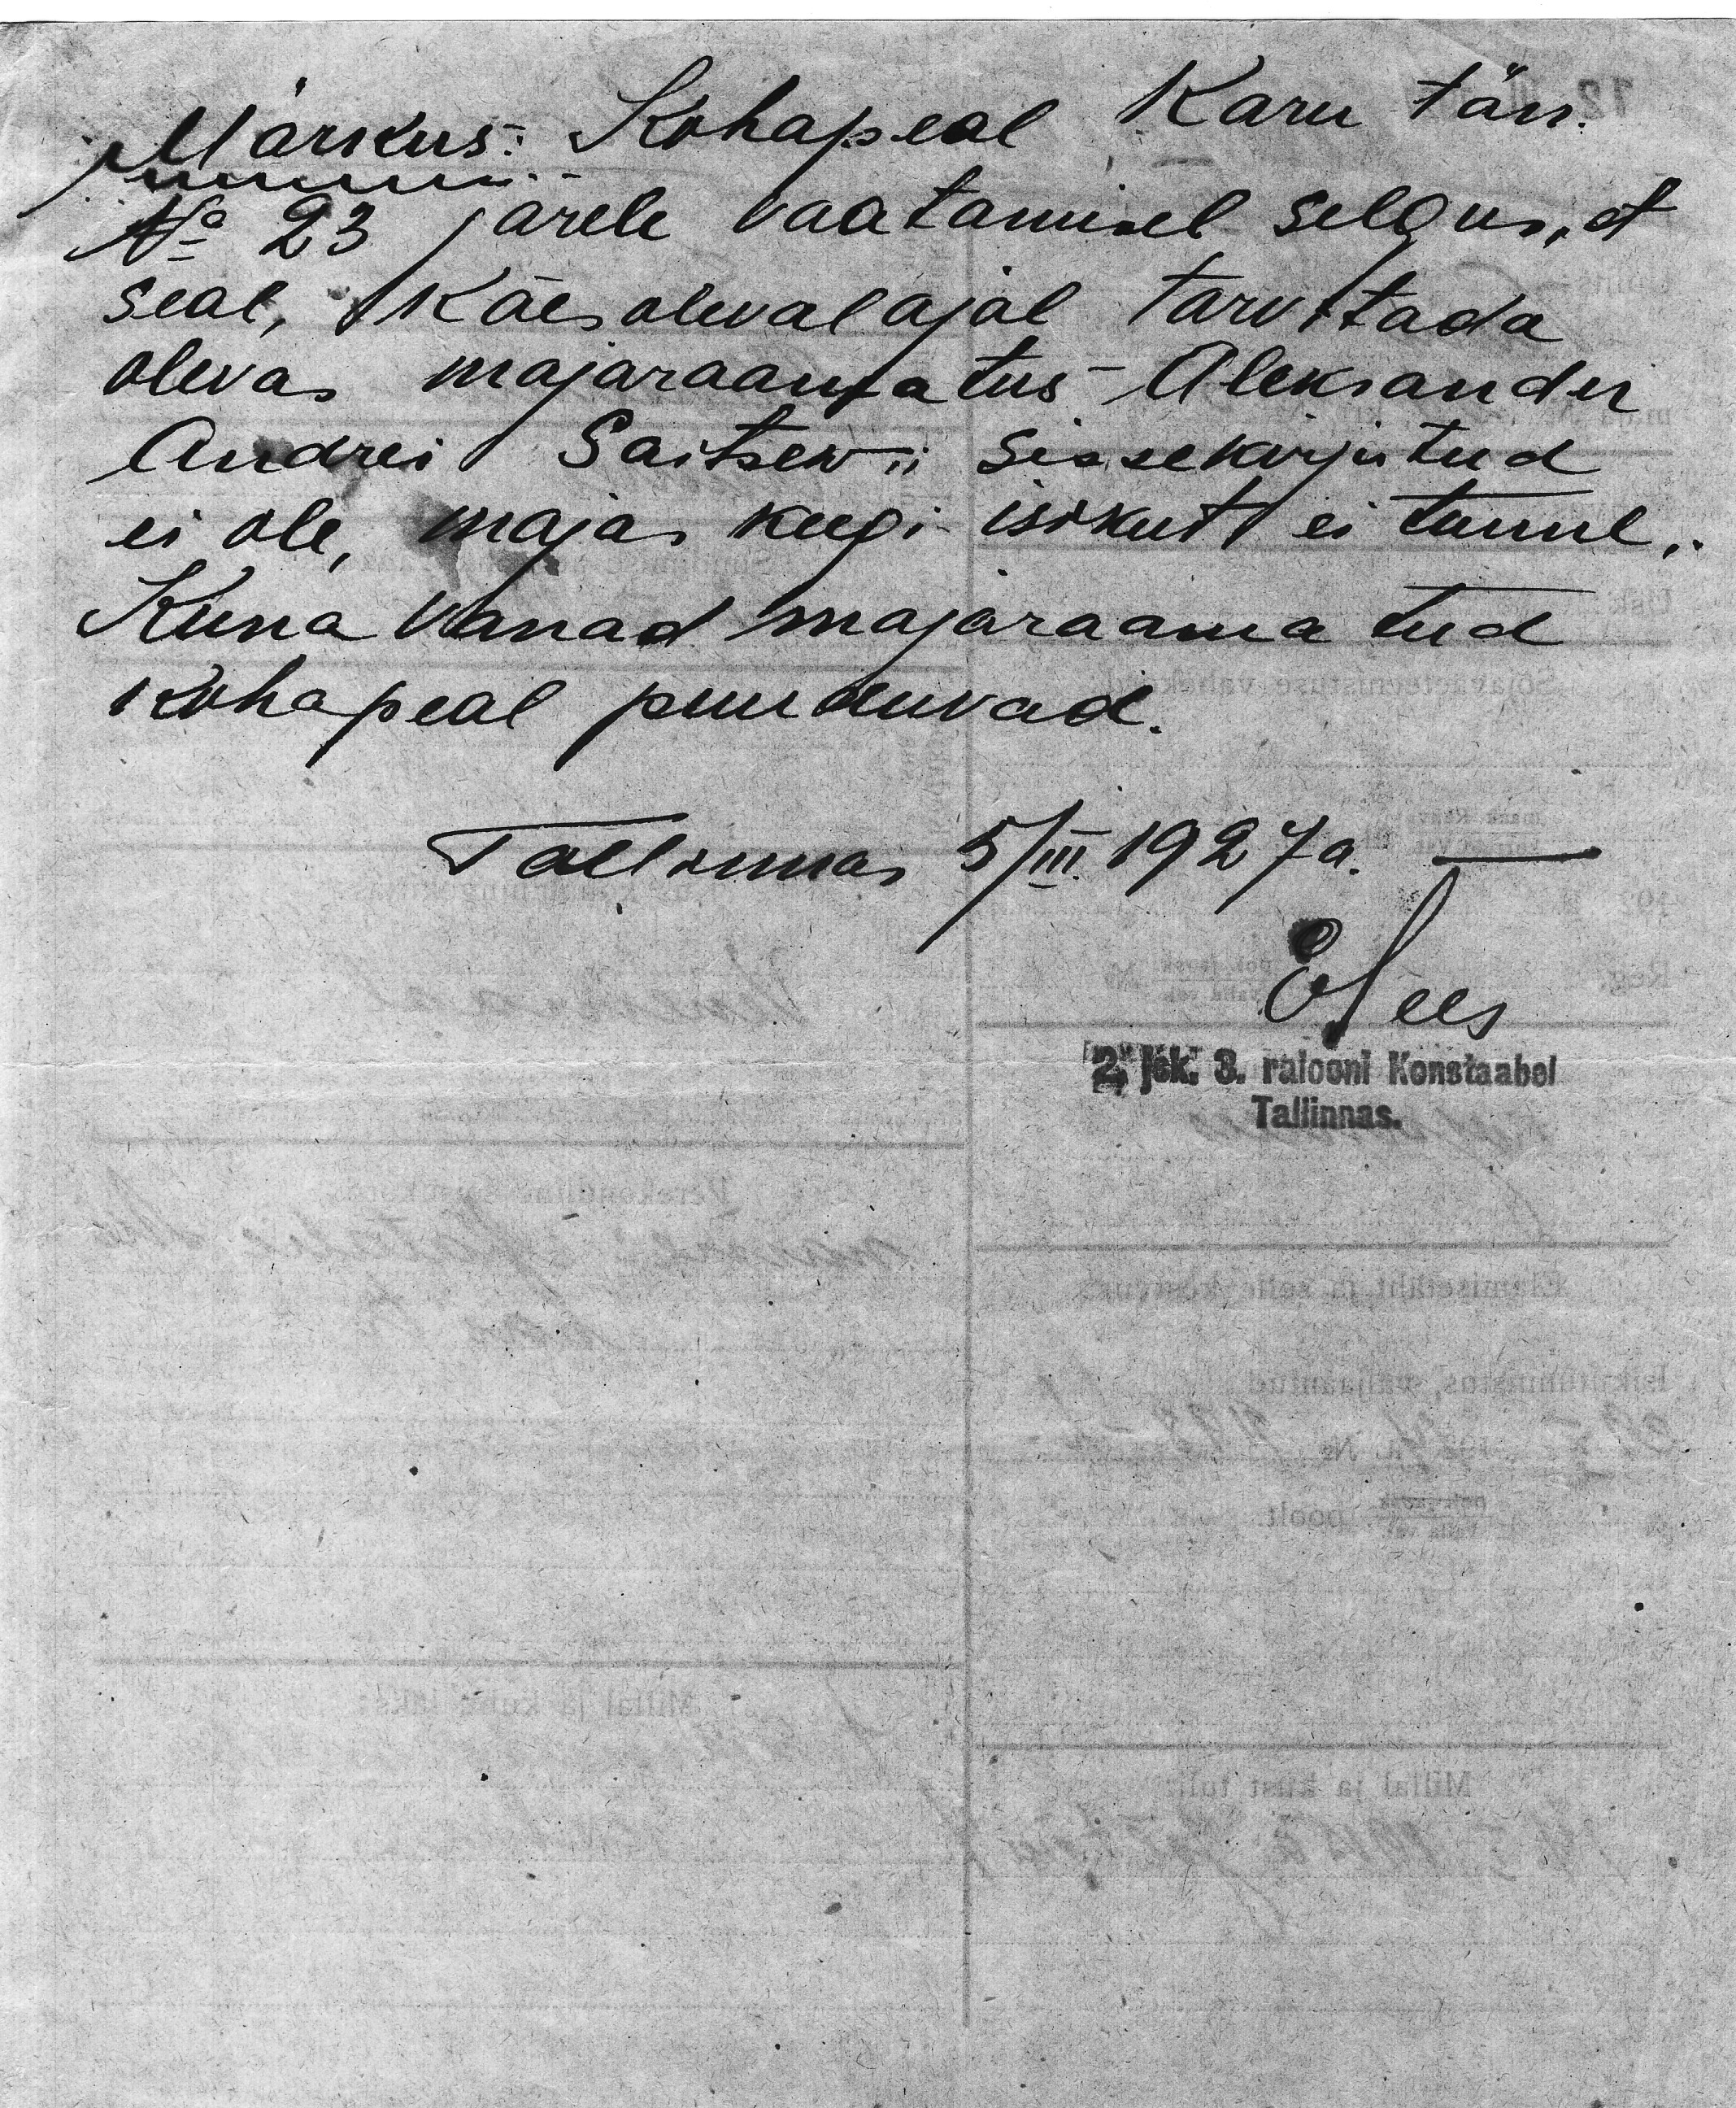 Märkus: Kohapeal Karu tän.
№ 23 järele vaatamisel selgus, et
seal, käesoleval ajal tarvitada
olevas majaraamatus Aleksander
Andrei Saitsew'i sissekirjutud
ei ole, majas keegi isikut ei tunne,
Kuna vanad majaraamatud
kohapeal puuduvad.
Tallinnas 5/III. 1927 a.
2. jsk. 3. raiooni Konstaabel
Tallinnas.